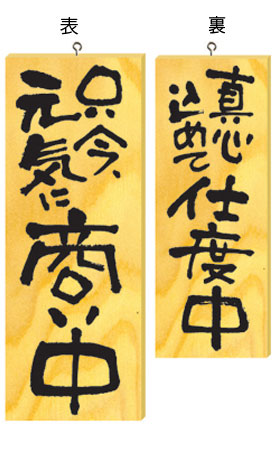 表
只今、
元気に
商い中
裏
真心
込めて
仕度中